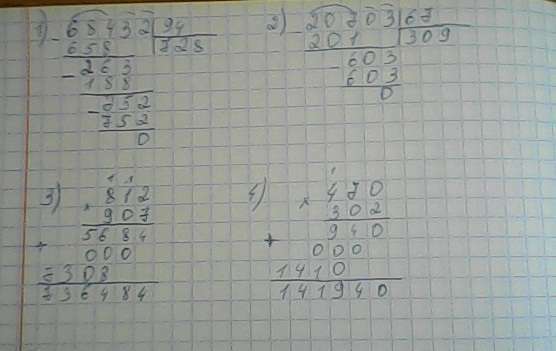 1) - 68432 | 94
658 | 728
- 263
188
- 752
752
0
2) - 20703 | 67
201 | 309
- 603
603
0
3) 1 1
× 812
907
+ 5684
000
7308
736484
4) 1
× 470
302
+ 940
000
1410
141940